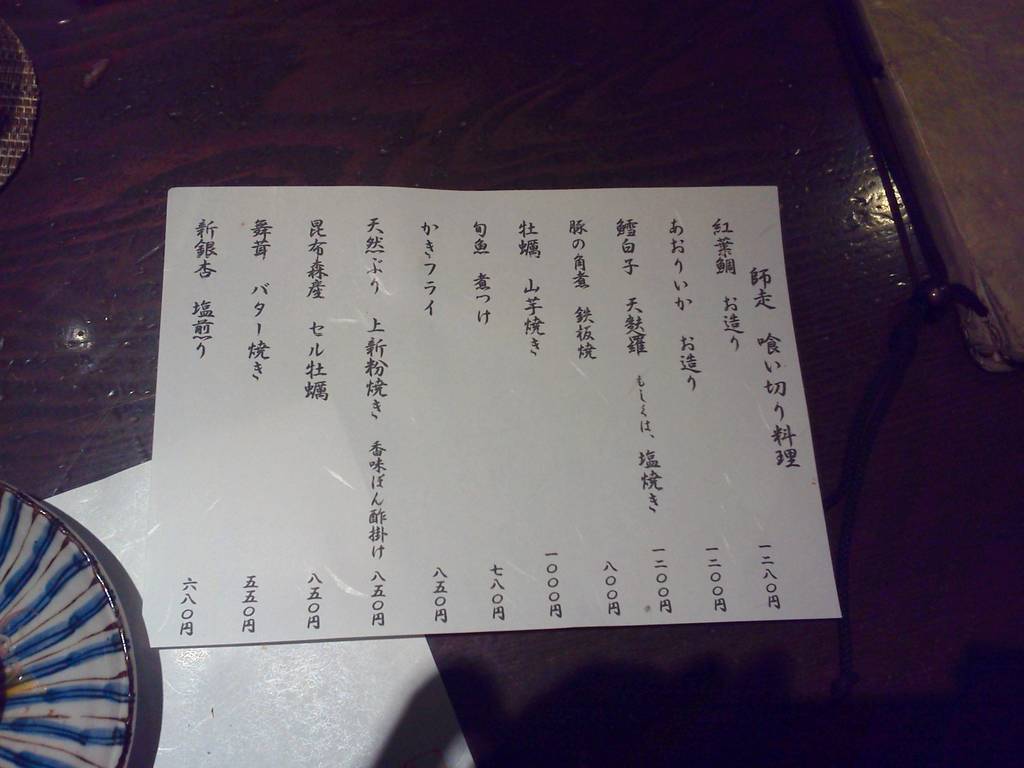 師走 喰い切り料理
紅葉鯛 お造り 一二八〇円
あおりいか お造り 一二〇〇円
鱈白子 天麩羅 もしくは、塩焼き 一二〇〇円
豚の角煮 鉄板焼 八〇〇円
牡蠣 山芋焼き 一〇〇〇円
旬魚 煮つけ 七八〇円
かきフライ 八五〇円
天然ぶり 上新粉焼き 香味ぽん酢掛け 八五〇円
昆布森産 セル牡蠣 八五〇円
舞茸 バター焼き 五五〇円
新銀杏 塩煎り 六八〇円